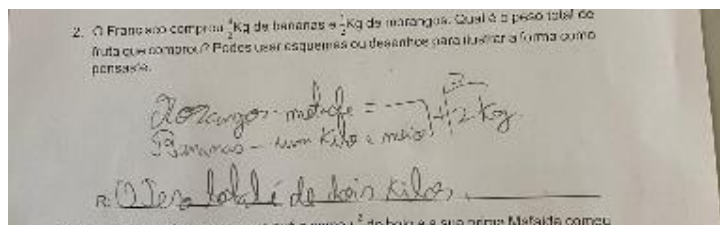 2. O Francisco comprou Kg de bananas e Kg de morangos. Qual é o peso total de
fruta que comprou? Podes usar esquemas ou desenhos para ilustrar a forma como
pensaste.
Morangos - metade =
Bananas - um kilo e meio 2 kg
R: O Peso total é de dois kilos.
de bolo e a sua prima Mafalda comeu